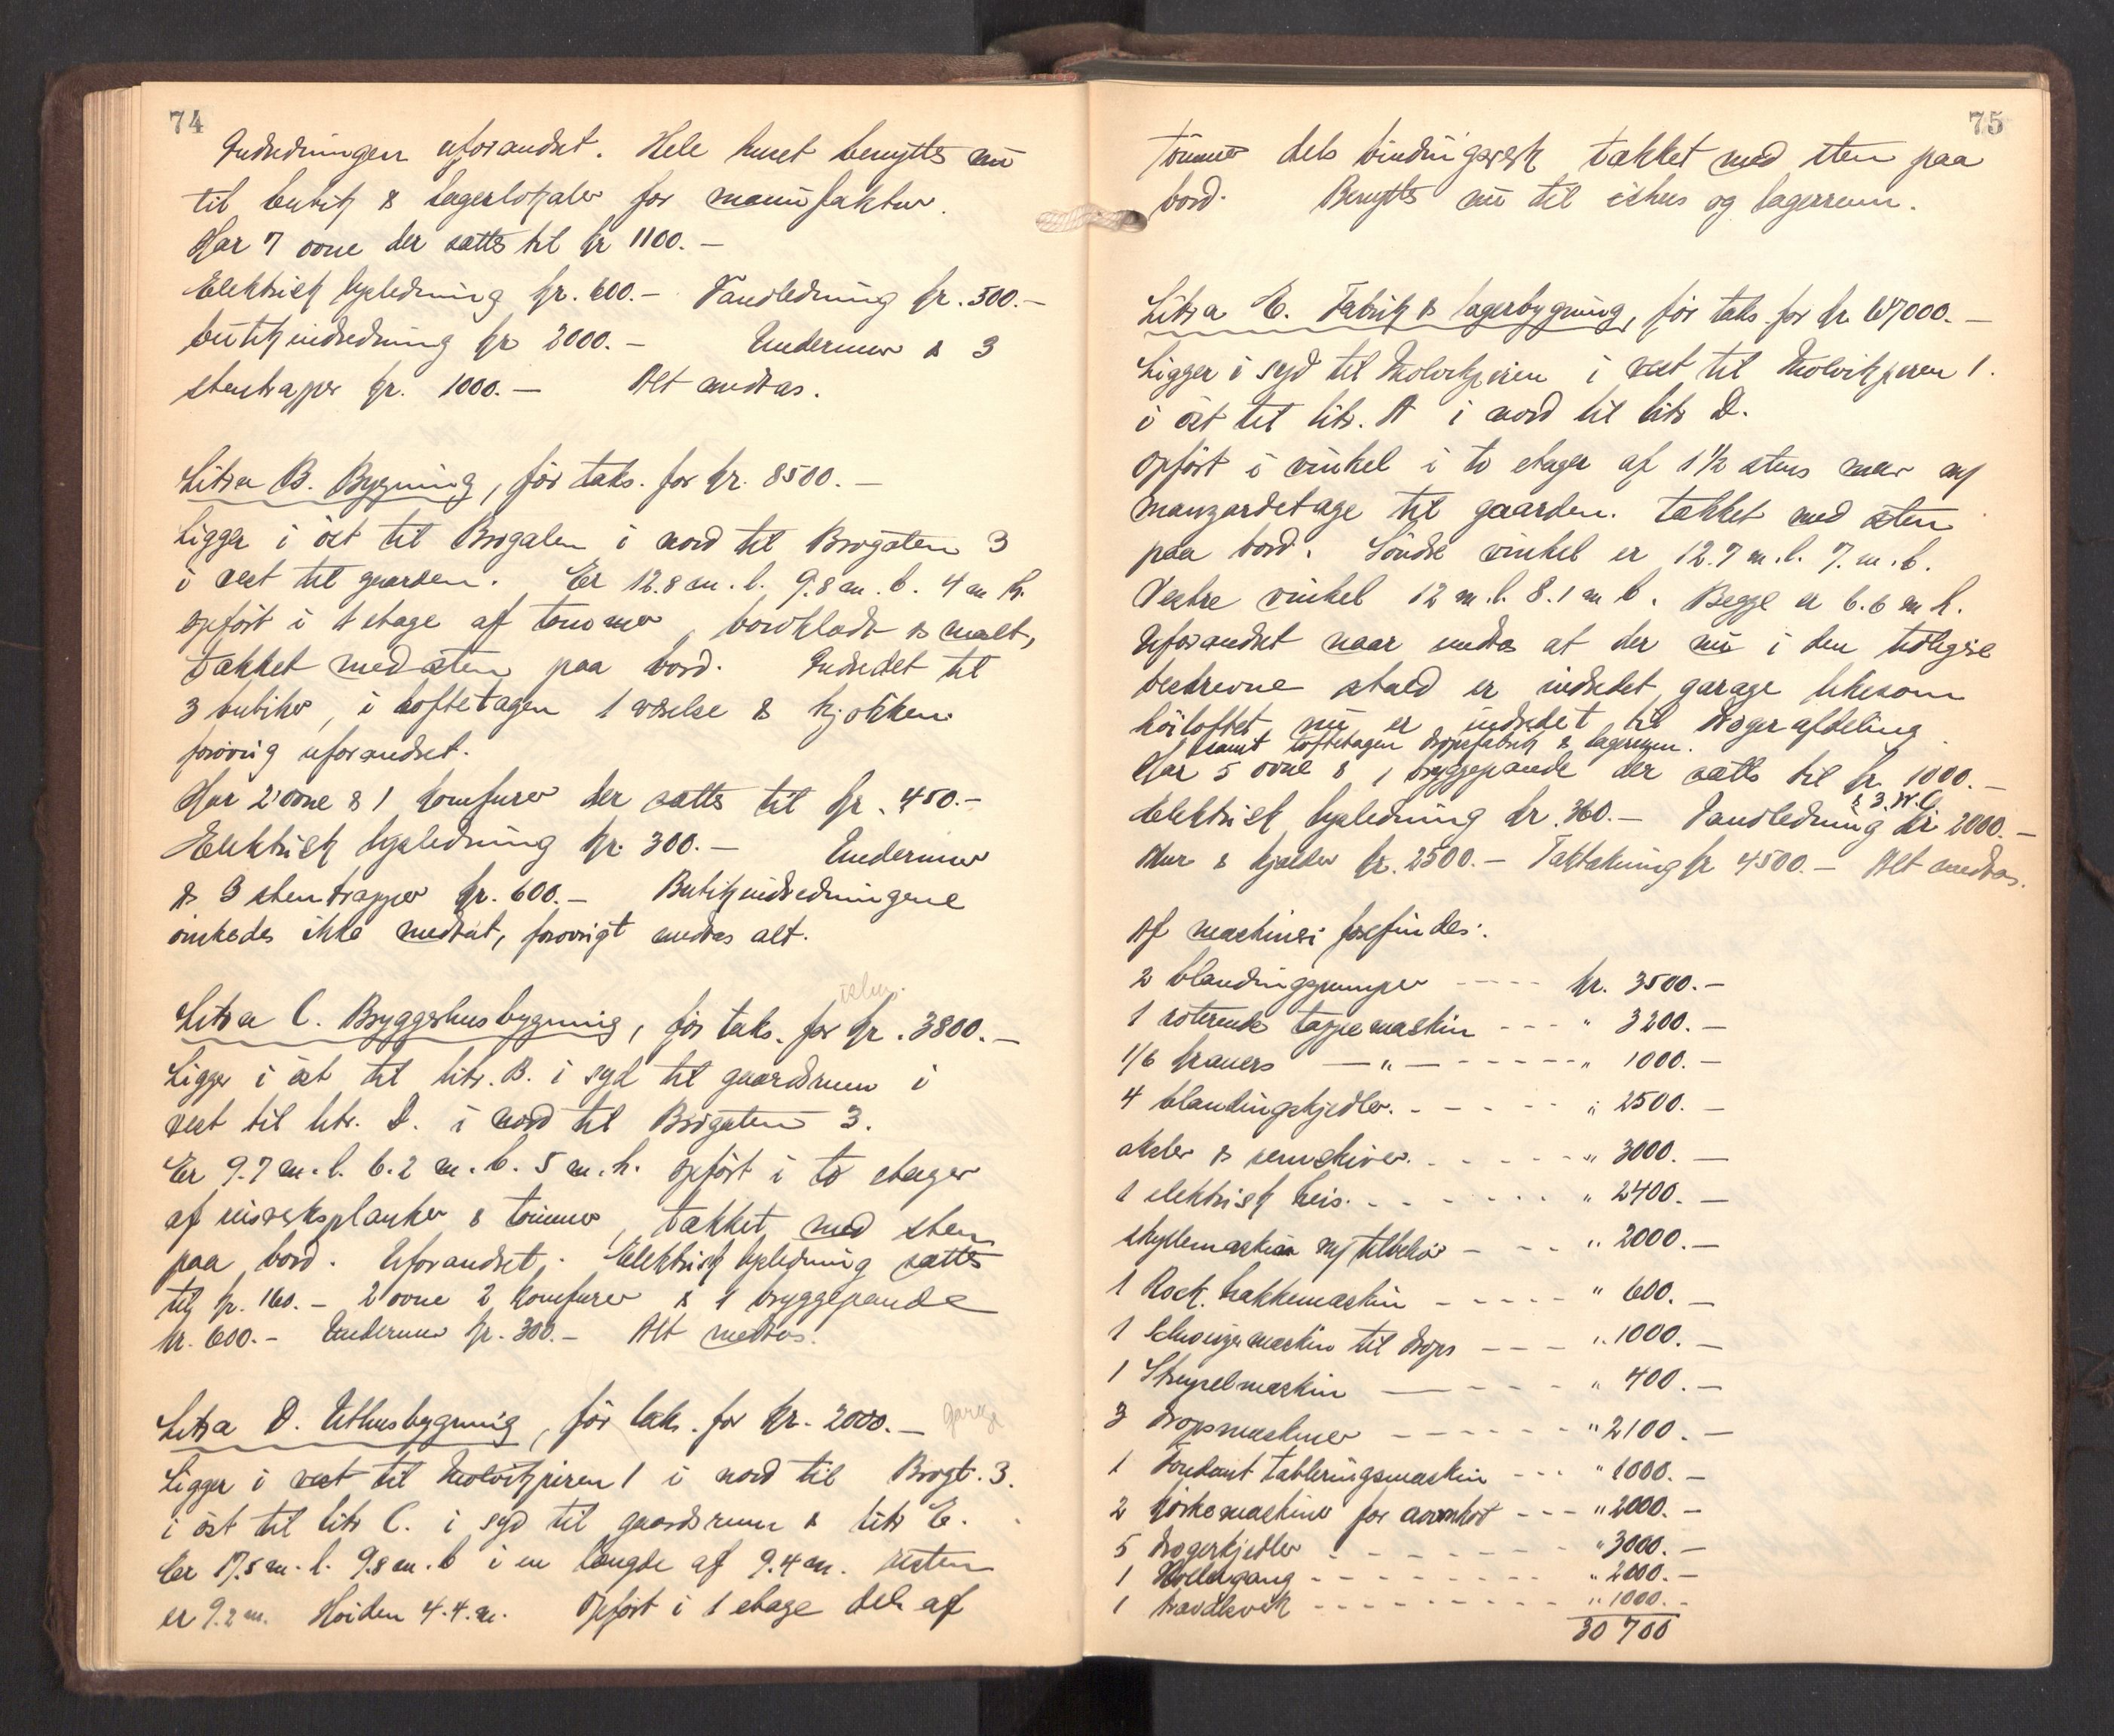 74
Indredningen uforandret. Hele huset benyttes nu
til butik & lagerlokaler for manufaktur.
Har 7 ovne der sættes til kr 1100.-
Elektrisk lysledning kr. 600.- Vandledning kr. 500.-
butikindredning kr 2000.- Undermur & 3
stentrapper kr. 1000.- Alt medtas.
Litra B. Bygning, før taks. for kr. 8500.-
Ligger i øst til Brogaten i nord til Brogaten 3
i vest til gaarden. Er 12.8 m. l. 9.8 m. b. 4 m h.
opført i 1 etage af tømmer, bordklædt & malt,
tækket med sten paa bord. Indredet til
3 butiker, i loftetagen 1 værelse & kjøkken
forøvrig uforandret.
Har 2 ovne & 1 komfurer der sættes til kr. 450.-
Elektrisk lysledning kr. 300.- Undermur
& 3 stentrapper kr. 600.- Butikindredningene
ønskedes ikke medtat, forøvrigt medtas alt.
ishus.
Litra C. Bryggerhusbygning, før taks. for kr. 3800.-
Ligger i øst til litr. B. i syd til gaardsrum i
vest til litr. D. i nord til Brogaten 3.
Er 9.7 m. l. 6.2 m. b. 5 m. h. opført i to etager
af utmursplanker & tømmer, tækket med sten
paa bord. Uforandret. Elektrisk lysledning sættes
til kr. 160.- 2 ovne 2 komfurer & 1 bryggepande
kr. 600.- Undermur kr. 300.- Alt medtas.
Litra D. Uthusbygning, før taks. for kr. 2000.- garage
Ligger i vest til Holvikjeren 1 i nord til Brogt. 3.
i øst til litr C. i syd til gaardsrum & litr E.
Er 17.5 m. l. 9.8 m. b i en længde af 9.4 m. resten
er 9.2 m. Høiden 4.4. m. Opført i 1 etage dels af
75
tømmer dels bindingsverk tækket med sten paa
bord. Benyttes nu til ishus og lagerrum.
Litra E. Fabrik & lagerbygning, før taks for kr 67000.-
Ligger i syd til Holvikjeren i vest til Holvikjeren 1.
i øst til litr. A i nord til litr D.
Opført i vinkel i to etager af 1½ stens mur m/
manzardetage til gaarden. tækket med sten
paa bord. Søndre vinkel er 12.7 m. l. 7. m. b.
Vestre vinkel 12 m. l. 8.1 m b. Begge er 6.6 m h.
Uforandret naar undtas at der nu i den tidligere
beskrevne stald er indredet garage likesom
høiloftet nu er indredet til drogerafdeling
samt loftetagen dropsfabrik & lagerrum.
Har 5 ovne & 1 bryggepande der sættes til kr. 1000.-
& 3. W.C.
Elektrisk lysledning kr. 360.- Vandledning kr 2000.-
Mur & kjælder kr. 2500.- Taktækning kr 4500.- Alt medtas.
Af maskineri forefindes:
2 blandingspumper ---- kr. 3500.-
1 roterende tappemaskin --- " 3200.-
1/6 kraners - " - ------ " 1000.-
4 blandingskjedler. ----- " 2500.-
aksler & remskiver. ------ " 3000.-
1 elektrisk heis. ------- " 2400.-
skyllemaskin m/ tilbehør --- " 2000.-
1 Rock. hakkemaskin ----- " 600.-
1 maskin til drops --- " 1000.-
1 Stempelmaskin ---- " 400.-
3 dropsmaskiner ------ " 2100.-
1 Fondant tableringsmaskin --- " 1000.-
2 korkemaskiner for --- " 2000.-
5 drogerkjedler ------- " 3000.-
1 Kollergang --------- " 2000.-
1 ---------- " 1000.-
30 700